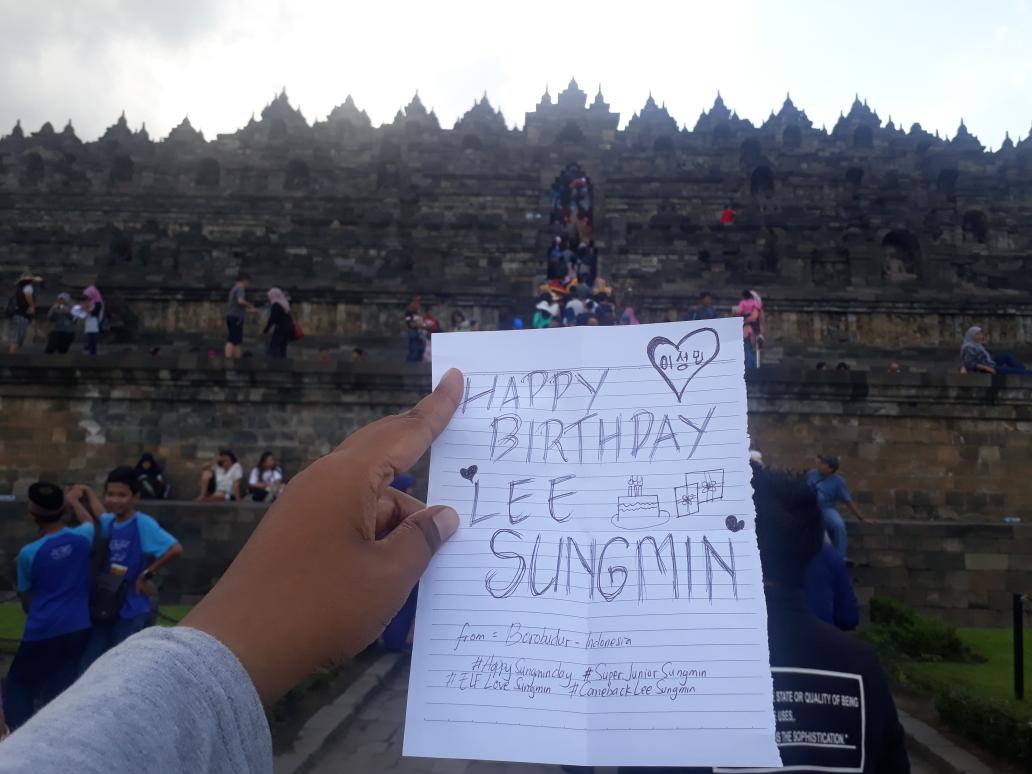 이성민
HAPPY
BIRTHDAY
LEE
SUNGMIN
from = Borobudur - Indonesia
#HappySungminday #SuperJuniorSungmin
#ELF Love Sungmin #ComebackLeeSungmin
STATE OR QUALITY OF BEING
USES.
IS THE SOPHISTICATION."